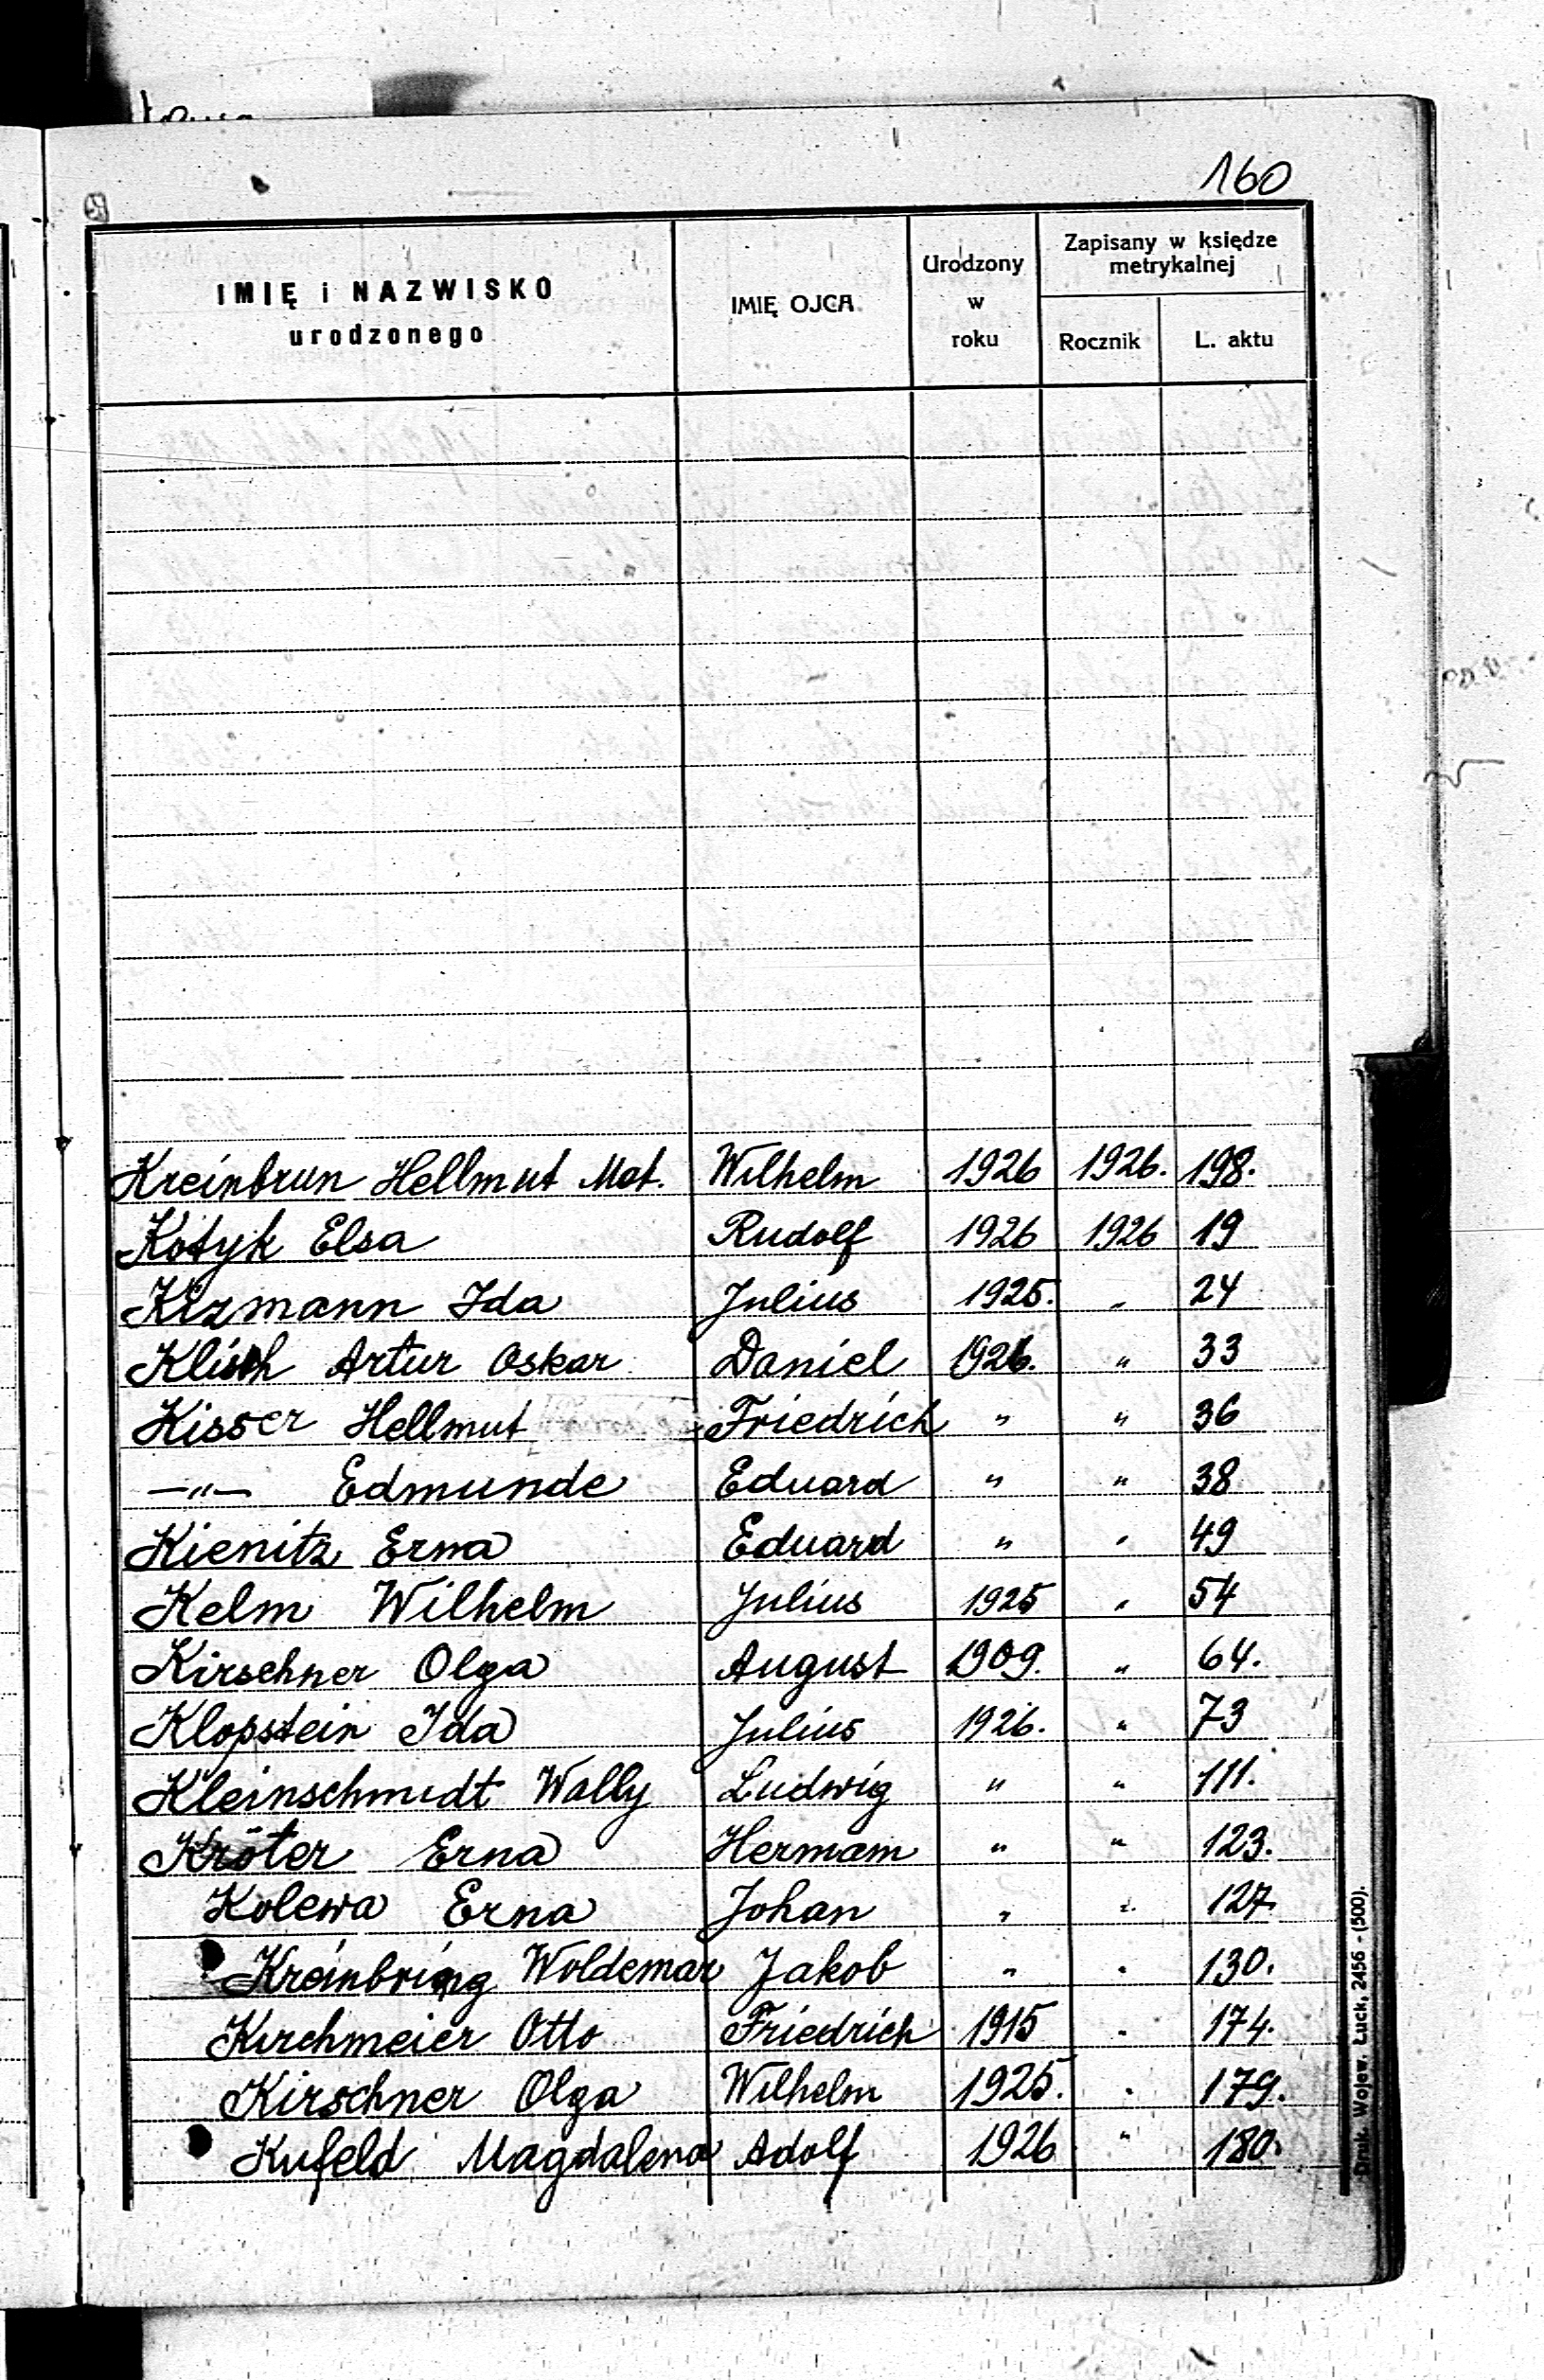 160
IMIĘ i NAZWISKO
urodzonego
IMIĘ OJCA
Urodzony
w
roku
Zapisany w księdze
metrykalnej
Rocznik
L. aktu
Kreinbrun Hellmut Mat. Wilhelm 1926 1926. 198.
Kotyk Elsa Rudolf 1926 1926 19
Kizmann Ida Julius 1925. " 24
Klisch Artur Oskar Daniel 1926. " 33
Kisser Hellmut Friedrich " " 36
—"— Edmunde Eduard " " 38
Kienitz Erna Eduard " " 49
Kelm Wilhelm Julius 1925 " 54
Kirschner Olga August 1909. " 64.
Klopstein Ida Julius 1926. " 73
Kleinschmidt Wally Ludwig " " 111.
Kröter Erna Hermann " " 123.
Kolewa Erna Johan " " 127.
Kreinbring Woldemar Jakob " " 130.
Kirchmeier Otto Friedrich 1915 " 174.
Kirschner Olga Wilhelm 1925. " 179.
Kufeld Magdalena Adolf 1926 " 180.
Druk. Wojew. Łuck, 2456 - (500).